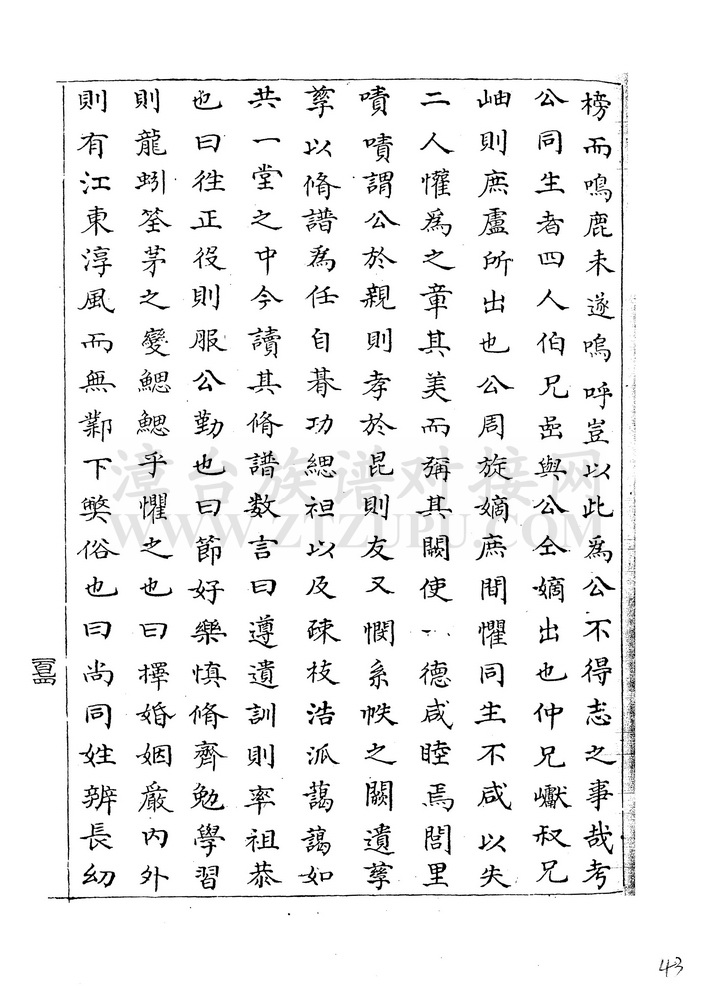 榜而鳴鹿未遂嗚呼豈以此為公不得志之事哉考
公同生者四人伯兄嵒與公仝嫡出也仲兄巘叔兄
岫則庶盧所出也公周旋嫡庶間懼同生不咸以失
二人懽為之章其美而彌其闕使德咸睦焉閭里
嘖嘖謂公於親則孝於昆則友又憫系帙之闕遺孳
孳以脩譜為任自朞功緦袒以及疎枝浩派藹藹如
共一堂之中今讀其脩譜数言曰遵遺訓則率祖恭
也曰徃正役則服公勤也曰節好樂慎脩齊勉學習
則龍蚓荃茅之變鰓鰓乎懼之也曰擇婚姻嚴內外
則有江東淳風而無鄴下獘俗也曰尚同姓辨長幼
漳台族谱对接网
WWW.ZTZUPU.COM
43